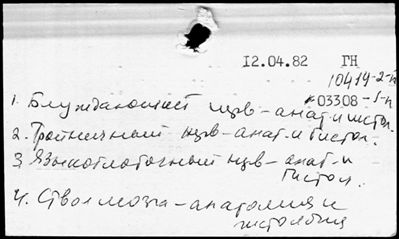 12.04.82 ГН
10414-2-н
*03308-1-н
1. Блуждающий нерв-анат. и гистол.
2. Тройничный нерв-анат. и гистол.
3. Языкоглоточный нерв-анат. и
гистол.
4. Ствол мозга-анатомия и
гистология